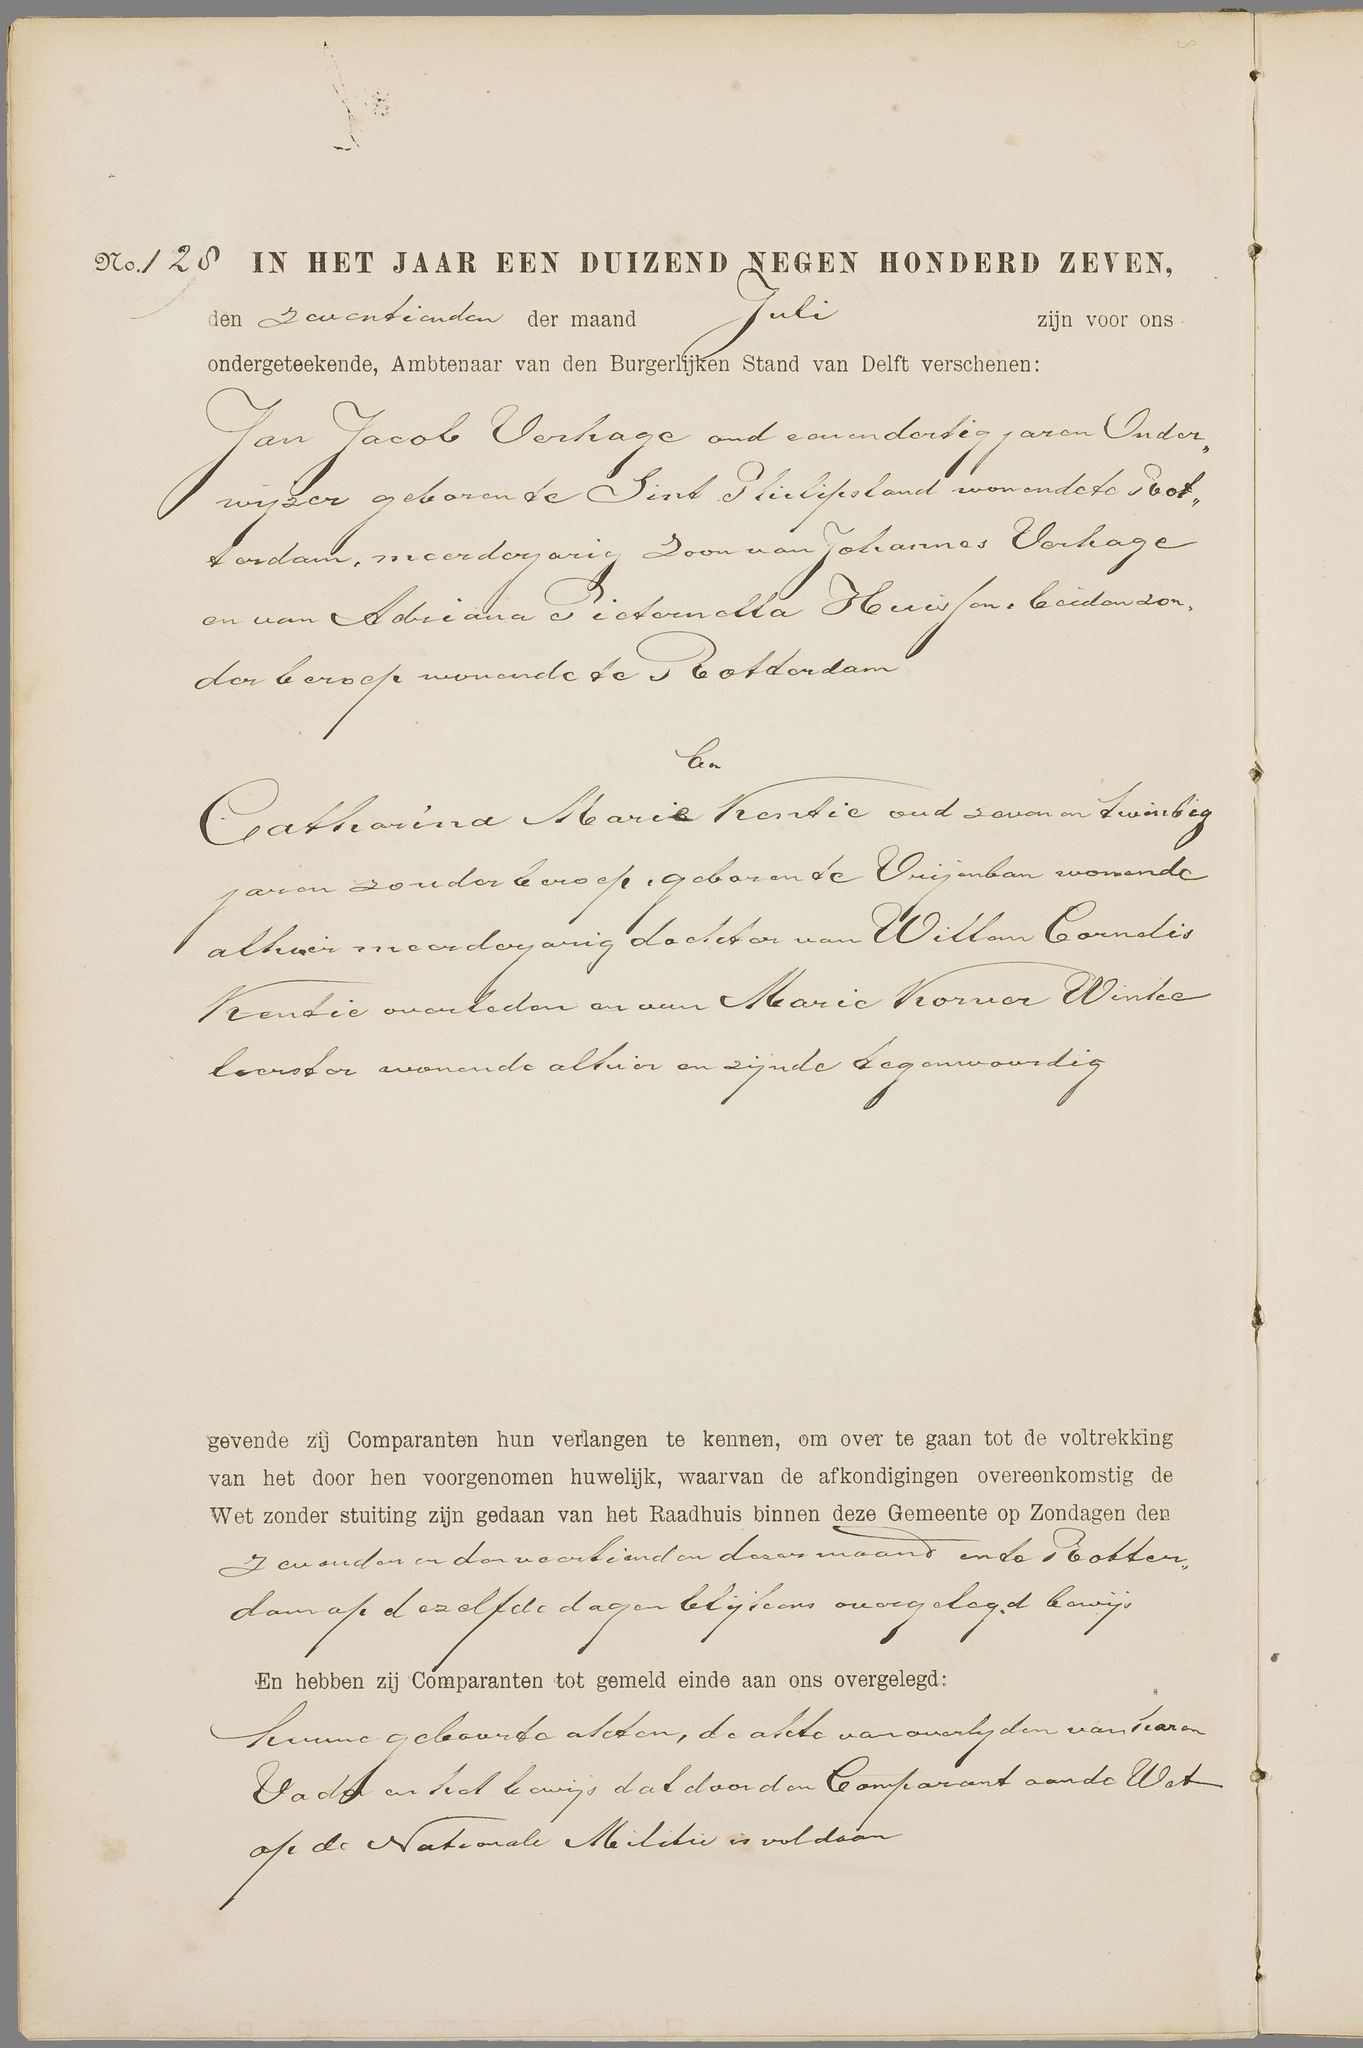 No. 128 IN HET JAAR EEN DUIZEND NEGEN HONDERD ZEVEN,
den zeventienden der maand Juli zijn voor ons
ondergeteekende, Ambtenaar van den Burgerlijken Stand van Delft verschenen:
Jan Jacob Verhage oud eenendertig jaren Onder„
wijzer geboren te Sint Philipsland wonende te Rot„
terdam, meerderjarig zoon van Johannes Verhage
en van Adriana Pieternella Huissen, beiden zon,
der beroep wonende te Rotterdam
En
Catharina Marie Kentie oud zeven en twintig
jaren zonder beroep, geboren te Vrijenban wonende
alhier meerderjarig dochter van Willem Cornelis
Kentie overleden en van Marie Korver Winke
lierster wonende alhier en zijnde tegenwoordig
gevende zij Comparanten hun verlangen te kennen, om over te gaan tot de voltrekking
van het door hen voorgenomen huwelijk, waarvan de afkondigingen overeenkomstig de
Wet zonder stuiting zijn gedaan van het Raadhuis binnen deze Gemeente op Zondagen den
zevenden en den veertienden dezer maand en te Rotter„
dam op dezelfde dagen blijkens overgelegd bewijs
En hebben zij Comparanten tot gemeld einde aan ons overgelegd:
hunne geboorte akten, de akte van overlijden van haren
Vader en het bewijs dat door den Comparant aan de Wet
op de Nationale Militie is voldaan